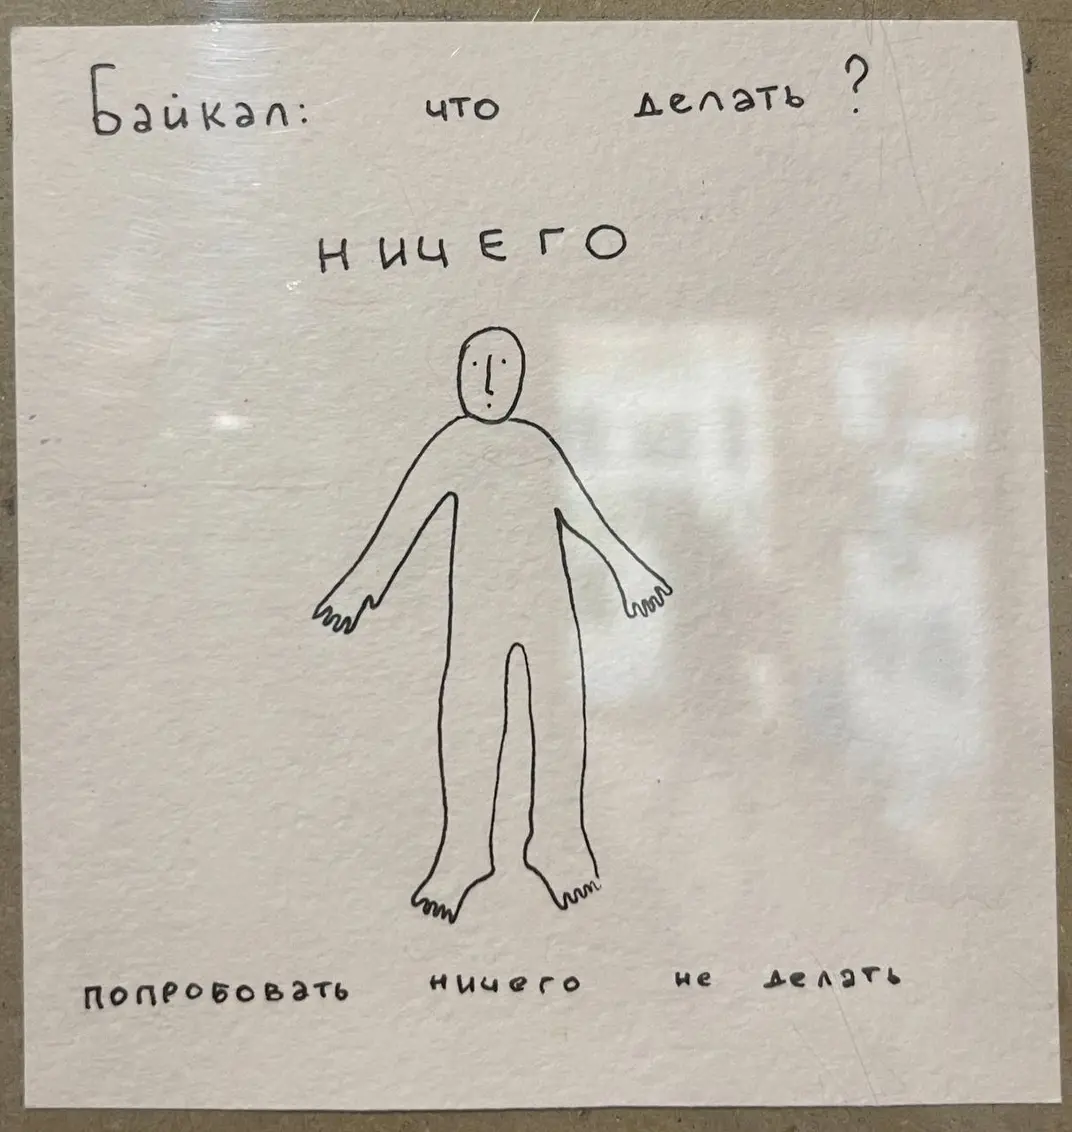 Байкал: что делать?
НИЧЕГО
попробовать ничего не делать